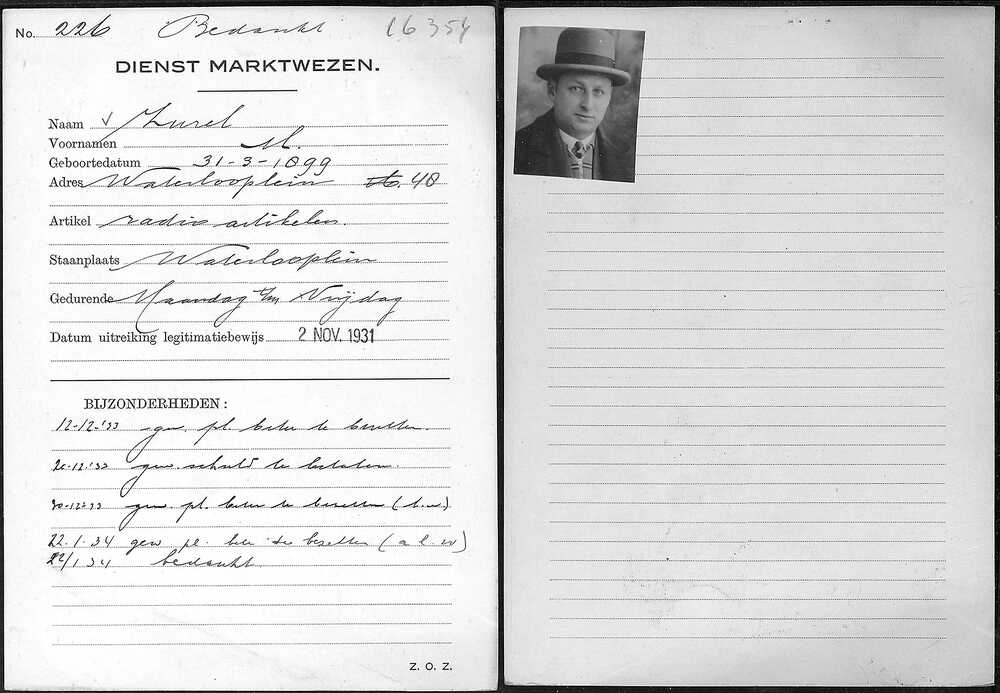 No. 226 Bedankt 16354
DIENST MARKTWEZEN.
Naam v Zurel
Voornamen M.
Geboortedatum 31-3-1899
Adres Waterlooplein 40
Artikel radio artikelen.
Staanplaats Waterlooplein
Gedurende Maandag t/m Vrijdag
Datum uitreiking legitimatiebewijs 2 NOV. 1931
BIJZONDERHEDEN:
12-12-'33 gew. pl. beter te bezetten.
20-12-'33 gew. schuld te betalen.
30-12-33 gew. pl. beter te bezetten (l.w.).
22-1-34 gew pl. beter te bezetten (a l. w)
22/1 34 bedankt.
Z. O. Z.